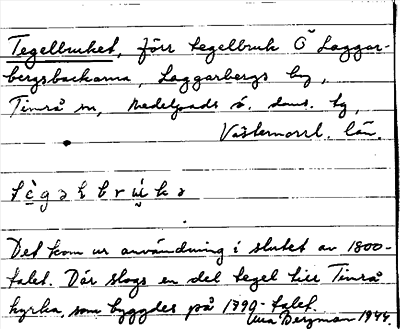 Tegelbruket, förr tegelbruk Ö Laggar-
bergsbackarna, Laggarbergs by,
Timrå sn, Medelpads ö. doms. tg,
Västernorrl. län.
Det kom ur användning i slutet av 1800-
talet. Där slogs en del tegel till Timrå
kyrka, som byggdes på 1790-talet.
Bergman 1944.